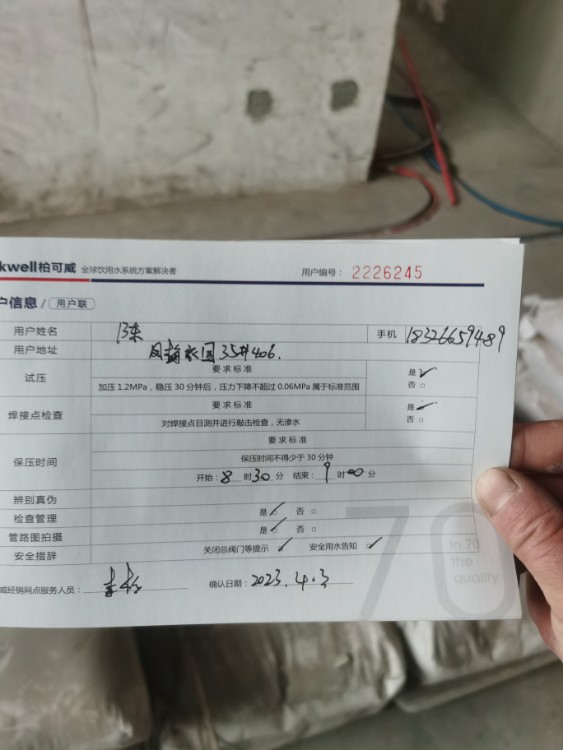 kwell柏可威 全球饮用水系统方案解决者 用户编号: 2226245
户信息 / 用户联
用户姓名 陈 手机 18326659489
用户地址 园35#406.
试压 要求标准 是 ✓
加压1.2MPa,稳压30分钟后,压力下降不超过0.06MPa属于标准范围 否 □
焊接点检查 要求标准 是 ✓
对焊接点目测并进行敲击检查,无渗水 否 □
保压时间 要求标准
保压时间不得少于30分钟
开始: 8 时 30 分 结束: 9 时 00 分
辨别真伪
检查管理 是 ✓ 否 □
管路图拍摄 是 ✓ 否 □
安全措辞 关闭总阀门等提示 ✓ 安全用水告知 ✓
威经销网点服务人员: 确认日期: 2023.4.3
70
In 70
the
quality